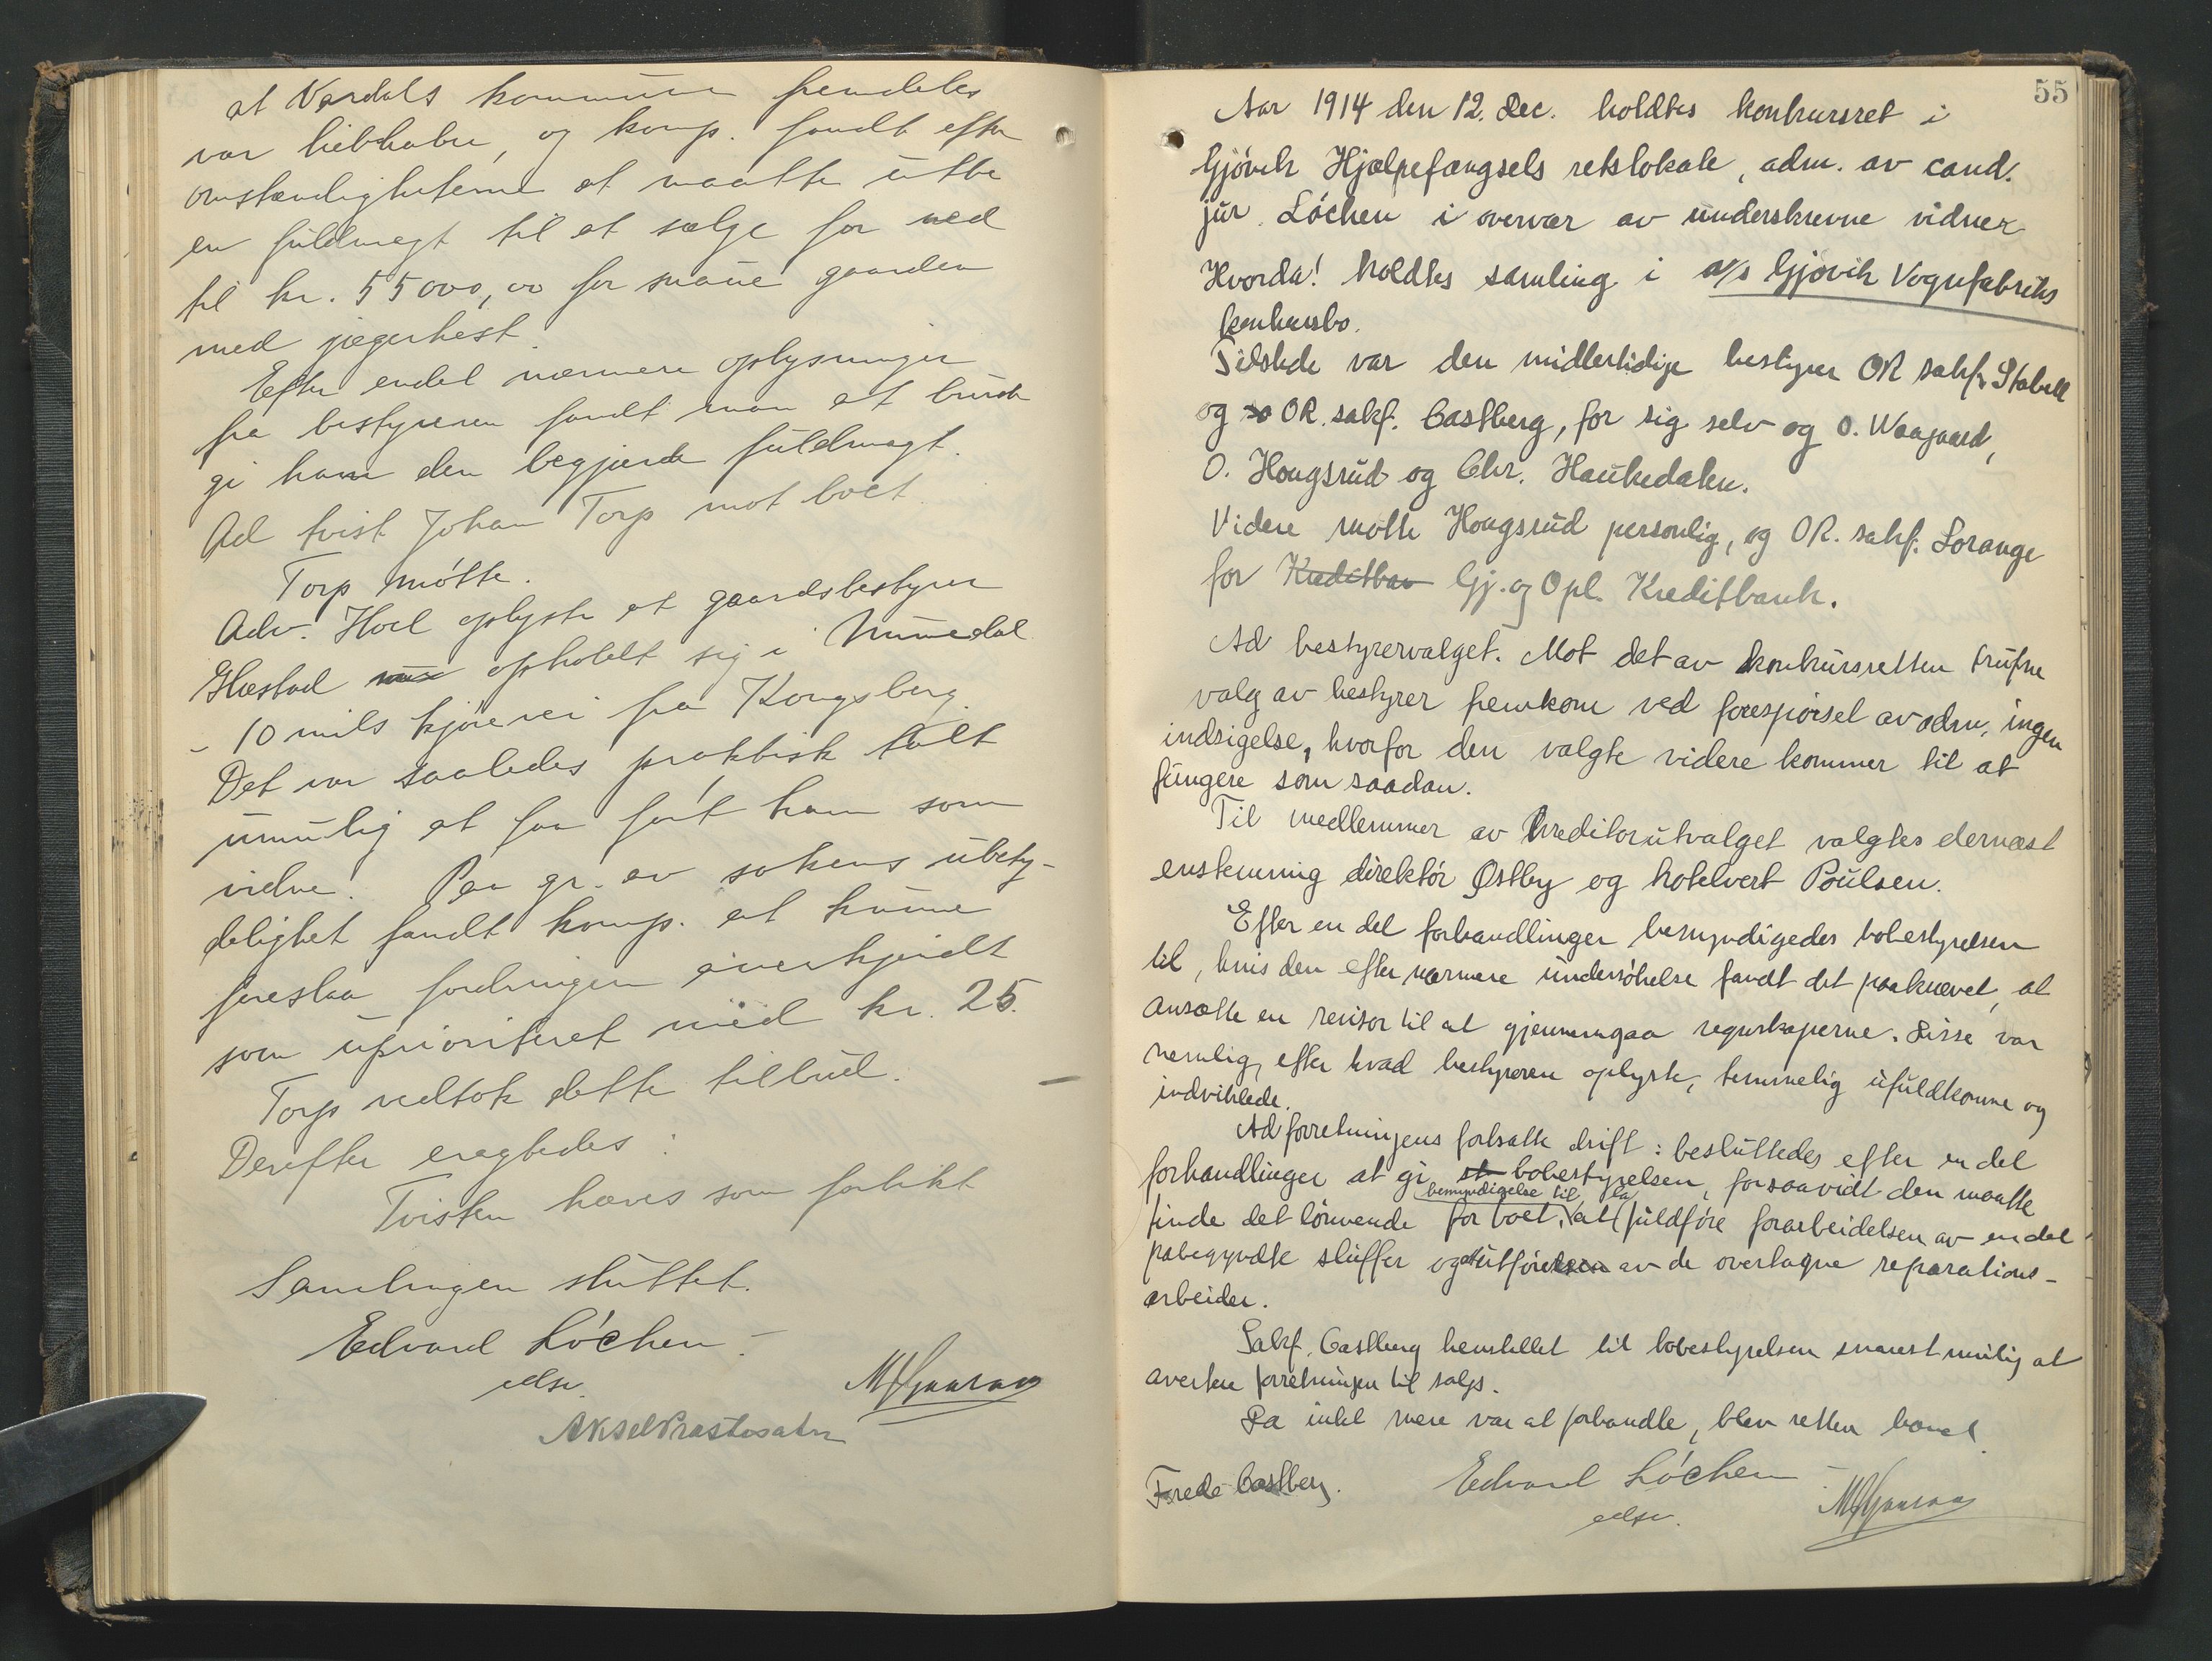 at Vardals kommune fremdeles
var liebhaber, og komp. fandt efter
omstændigheterne at maatte utbe
en fuldmagt til at sælge for ned
til kr. 55000,00 for snaue gaarden
med jægerhest.
Efter endel nærmere oplysninger
fra bestyreren fandt man at burde
gi ham den begjærte fuldmagt.
Ad tvist Johan Torp mot boet
Torp møtte.
Adv. Hoel oplyste at gaardsbestyrer
Glæstad opholdt sig i Numedal
- 10 mils kjørevei fra Kongsberg.
Det var saaledes praktisk talt
umulig at faa ført ham som
vidne. Paa gr. av sakens ubety-
delighet fandt komp. at kunne
foreslaa fordringen anerkjendt
som uprioritert med kr. 25.
Torp vedtok dette tilbud.
Derefter eragtedes:
Tvisten hæves som forlikt
Samlingen sluttet.
Edvard Løchen
edsv.
55
Aar 1914 den 12. Dec. holdtes konkursret i
Gjøvik Hjælpefængsels retslokale, adm. av cand.
jur. Løchen i overvær av underskrevne vidner
Hvorda! Holdtes samling i a/s Gjøvik Vognfabriks
konkursbo.
Tilstede var den midlertidige bestyrer OR sakf. Stabell
og so OR. sakf. Castberg, for sig selv og O. Waagaard,
O. Hougsrud og Chr. Haukedalen.
Videre møtte Hougsrud personlig, og OR. sakf. Lorange
for Kreditban Gj. og Opl. Kreditbank.
Ad bestyrervalget. Mot det av konkursretten trufne
valg av bestyrer fremkom ved forespørsel av adm. ingen
indsigelse, hvorfor den valgte videre kommer til at
fungere som saadan.
Til medlemmer av kreditorutvalget valgtes dernæst
enstemmig direktør Østby og hotelvert Poulsen.
Efter en del forhandlinger bemyndigedes bobestyrelsen
til, hvis den efter nærmere undersøkelse fandt det paakrævet, at
ansætte en revisor til at gjennemgaa regnskaperne. Disse var
nemlig, efter hvad bestyreren oplyste, temmelig ufuldkomne og
indviklede.
Ad forretningens fortsatte drift: besluttedes efter en del
forhandlinger at gi st bobestyrelsen, forsaavidt den maatte
finde det lønnende for boet, bemyndigelse til at la fuldføre forarbeidelsen av en del
paabegyndte sluffer og at utføre av de overtagne reparations-
arbeider.
Sakf. Castberg henstillet til bobestyrelsen snarest mulig at
avertere forretningen til salgs.
Da intet mere var at forhandle, blev retten hævet.
Frede Castberg. Edvard Løchen
edsv.